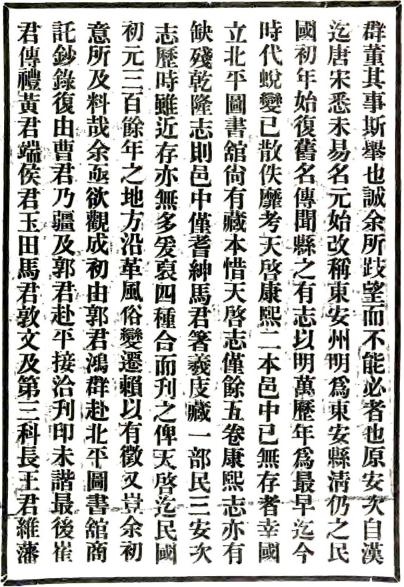 群董其事斯舉也誠余所跂望而不能必者也原安次自漢
迄唐宋悉未易名元始改稱東安州明爲東安縣淸仍之民
國初年始復舊名傳聞縣之有志以明萬歷年爲最早迄今
時代蛻變已散佚靡考天啓康熙二本邑中已無存者幸國
立北平圖書舘尙有藏本惜天啓志僅餘五卷康熙志亦有
缺殘乾隆志則邑中僅耆紳馬君箸羲庋藏一部民三安次
志歷時雖近存亦無多爰裒四種合而刋之俾天啓迄民國
初元三百餘年之地方沿革風俗變遷賴以有徵又豈余初
意所及料哉余亟欲觀成初由郭君鴻群赴北平圖書舘商
託鈔錄復由曹君乃疆及郭君赴平接洽刋印未諧最後崔
君傳禮黃君端侯君玉田馬君敦文及第三科長王君維藩